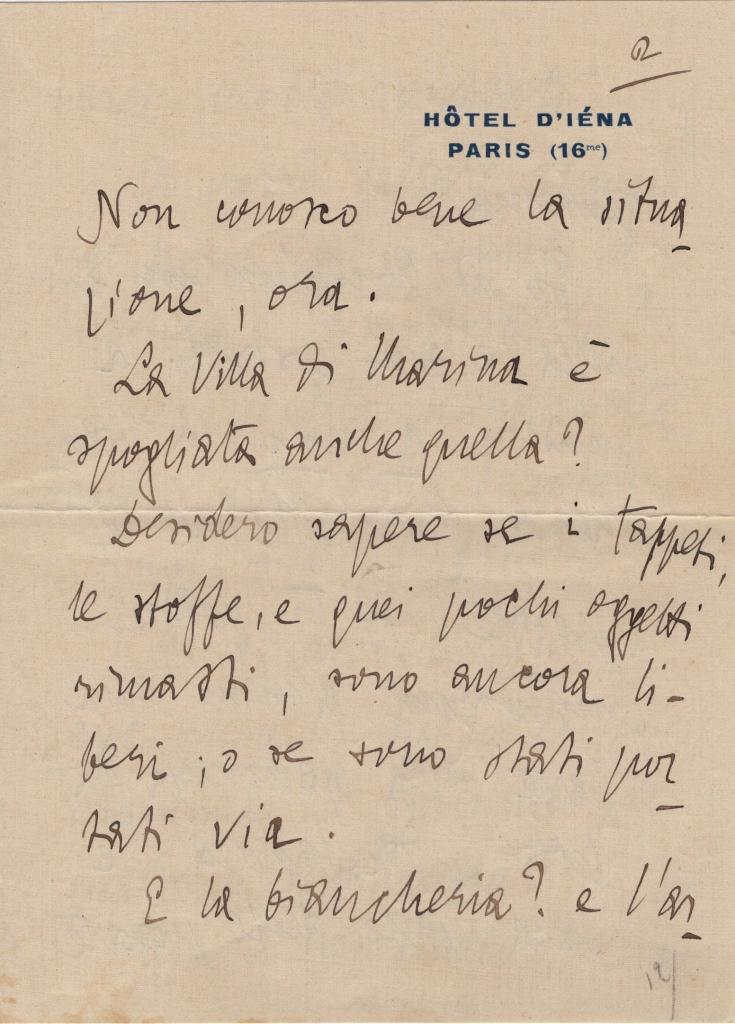 2
HÔTEL D'IÉNA
PARIS (16me)
Non conosco bene la situa
zione, ora.
La Villa di Marina è
spogliata anche quella?
Desidero sapere se i tappeti,
le stoffe, e quei pochi oggetti
rimasti, sono ancora li-
beri; o se sono stati por
tati via.
E la biancheria? e l'ar
12